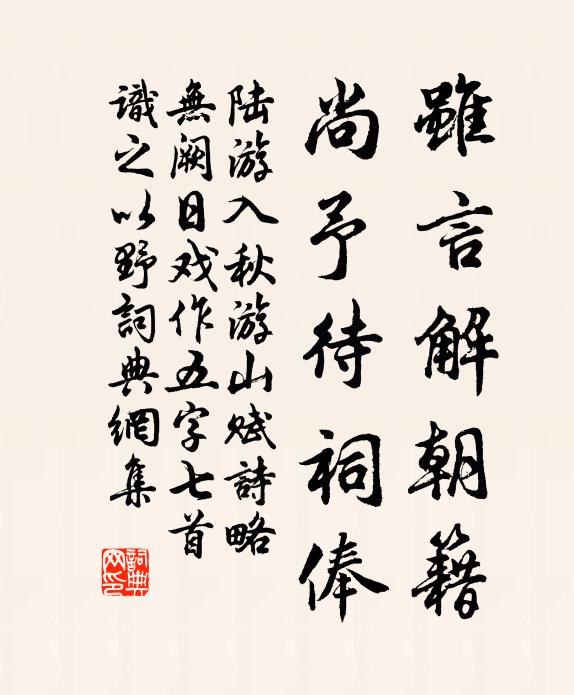 雖言解朝籍
尚予待祠俸
陆游入秋游山赋詩略
無阙日戏作五字七首
識之以野詞典網集
詞典网印